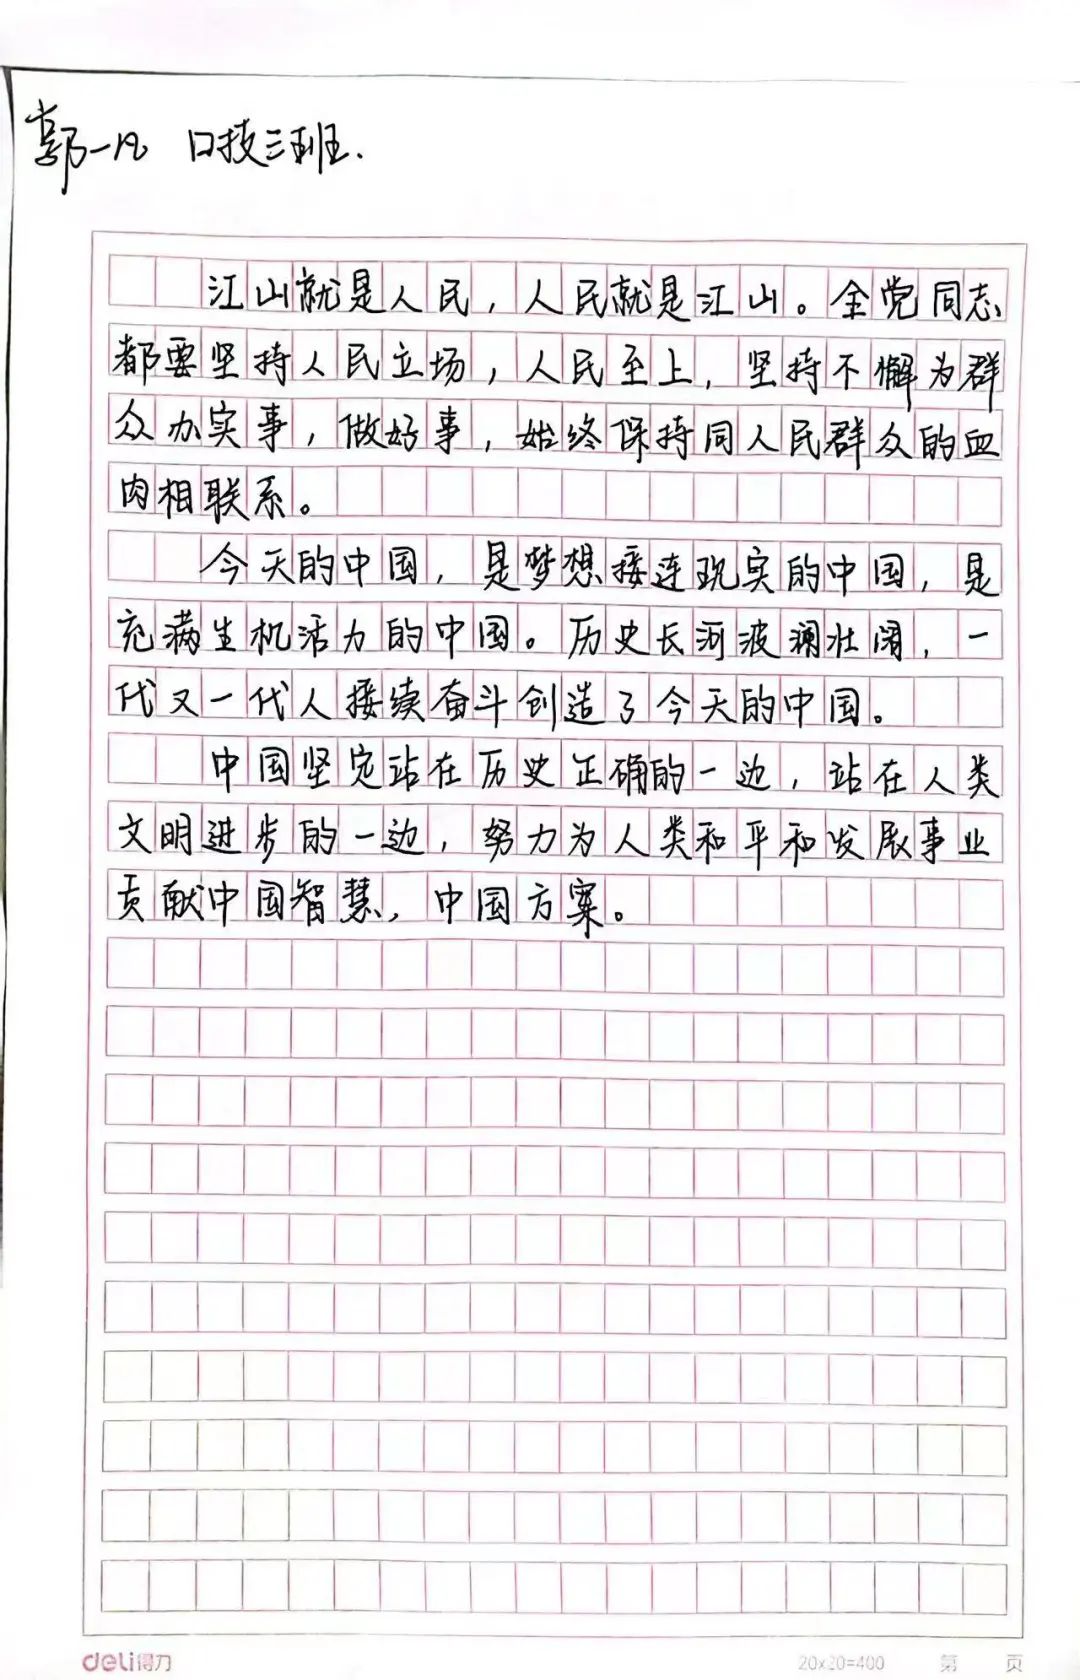 郭一凡 口技三班.
江山就是人民，人民就是江山。全党同志
都要坚持人民立场，人民至上，坚持不懈为群
众办实事，做好事，始终保持同人民群众的血
肉相联系。
今天的中国，是梦想接连现实的中国，是
充满生机活力的中国。历史长河波澜壮阔，一
代又一代人接续奋斗创造了今天的中国。
中国坚定站在历史正确的一边，站在人类
文明进步的一边，努力为人类和平和发展事业
贡献中国智慧，中国方案。
deli得力 20×20=400 第 页